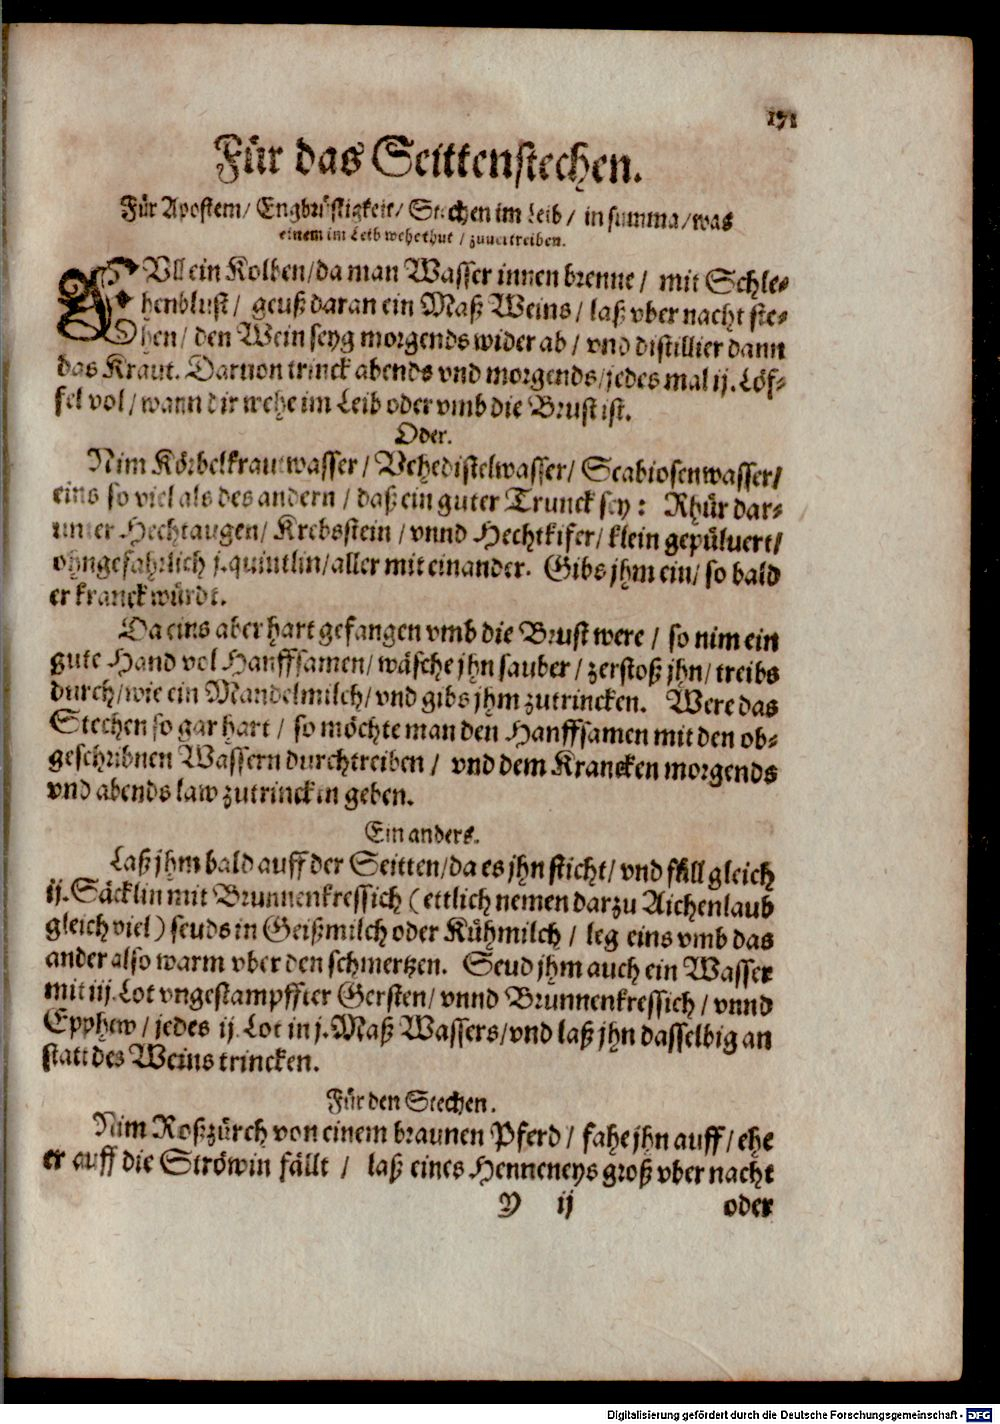 171
Für das Seittenstechen.
Für Apostem/ Engbrüstigkeit/ Stechen im Leib/ in summa/ was
einem im Leib wehe thut/ zuuertreiben.
FVll ein Kolben/ da man Wasser innen brenne/ mit Schle-
henblust/ geuß daran ein Maß Weins/ laß vber nacht ste-
hen/ den Wein seyg morgends wider ab/ vnd distillier dann
das Kraut. Daruon trinck abends vnd morgends/ jedes mal ij. Löf-
fel vol/ wann dir wehe im Leib oder vmb die Brust ist.
Oder.
Nim Körbelkrautwasser/ Vehedistelwasser/ Scabiosenwasser/
eins so viel als des andern/ daß ein guter Trunck sey: Rhür dar-
unter Hechtaugen/ Krebsstein/ vnnd Hechtkifer/ klein gepülvert/
ohngefahrlich j. quintlin/ aller mit einander. Gibs jhm ein/ so bald
er kranck würdt.
Da eins aber hart gefangen vmb die Brust were/ so nim ein
gute Hand vol Hanffsamen/ wäsche jhn sauber/ zerstoß jhn/ treibs
durch/ wie ein Mandelmilch/ vnd gibs jhm zutrincken. Were das
Stechen so gar hart/ so möchte man den Hanffsamen mit den ob-
geschribnen Wassern durchtreiben/ vnd dem Krancken morgends
vnd abends law zutrincken geben.
Ein anders.
Laß jhm bald auff der Seitten/ da es jhn sticht/ vnd füll gleich
ij. Säcklin mit Brunnenkressich (ettlich nemen darzu Aichenlaub
gleich viel) seuds in Geißmilch oder Kühmilch/ leg eins vmb das
ander also warm vber den schmertzen. Seud jhm auch ein Wasser
mit iij. Lot vngestampffter Gersten/ vnnd Brunnenkressich/ vnnd
Epphew/ jedes ij. Lot in j. Maß Wassers/ vnd laß jhn dasselbig an
statt des Weins trincken.
Für den Stechen.
Nim Roßzürch von einem braunen Pferd/ fahe jhn auff/ ehe
er auff die Ströwin fällt/ laß eines Henneneys groß vber nacht
Y ij oder
Digitalisierung gefördert durch die Deutsche Forschungsgemeinschaft - DFG